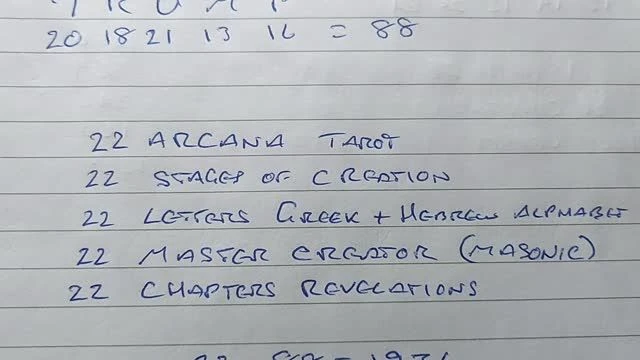 T R U M P
20 18 21 13 16 = 88
22 ARCANA TAROT
22 STAGES OF CREATION
22 LETTERS GREEK + HEBREW ALPHABET
22 MASTER CREATOR (MASONIC)
22 CHAPTERS REVELATIONS